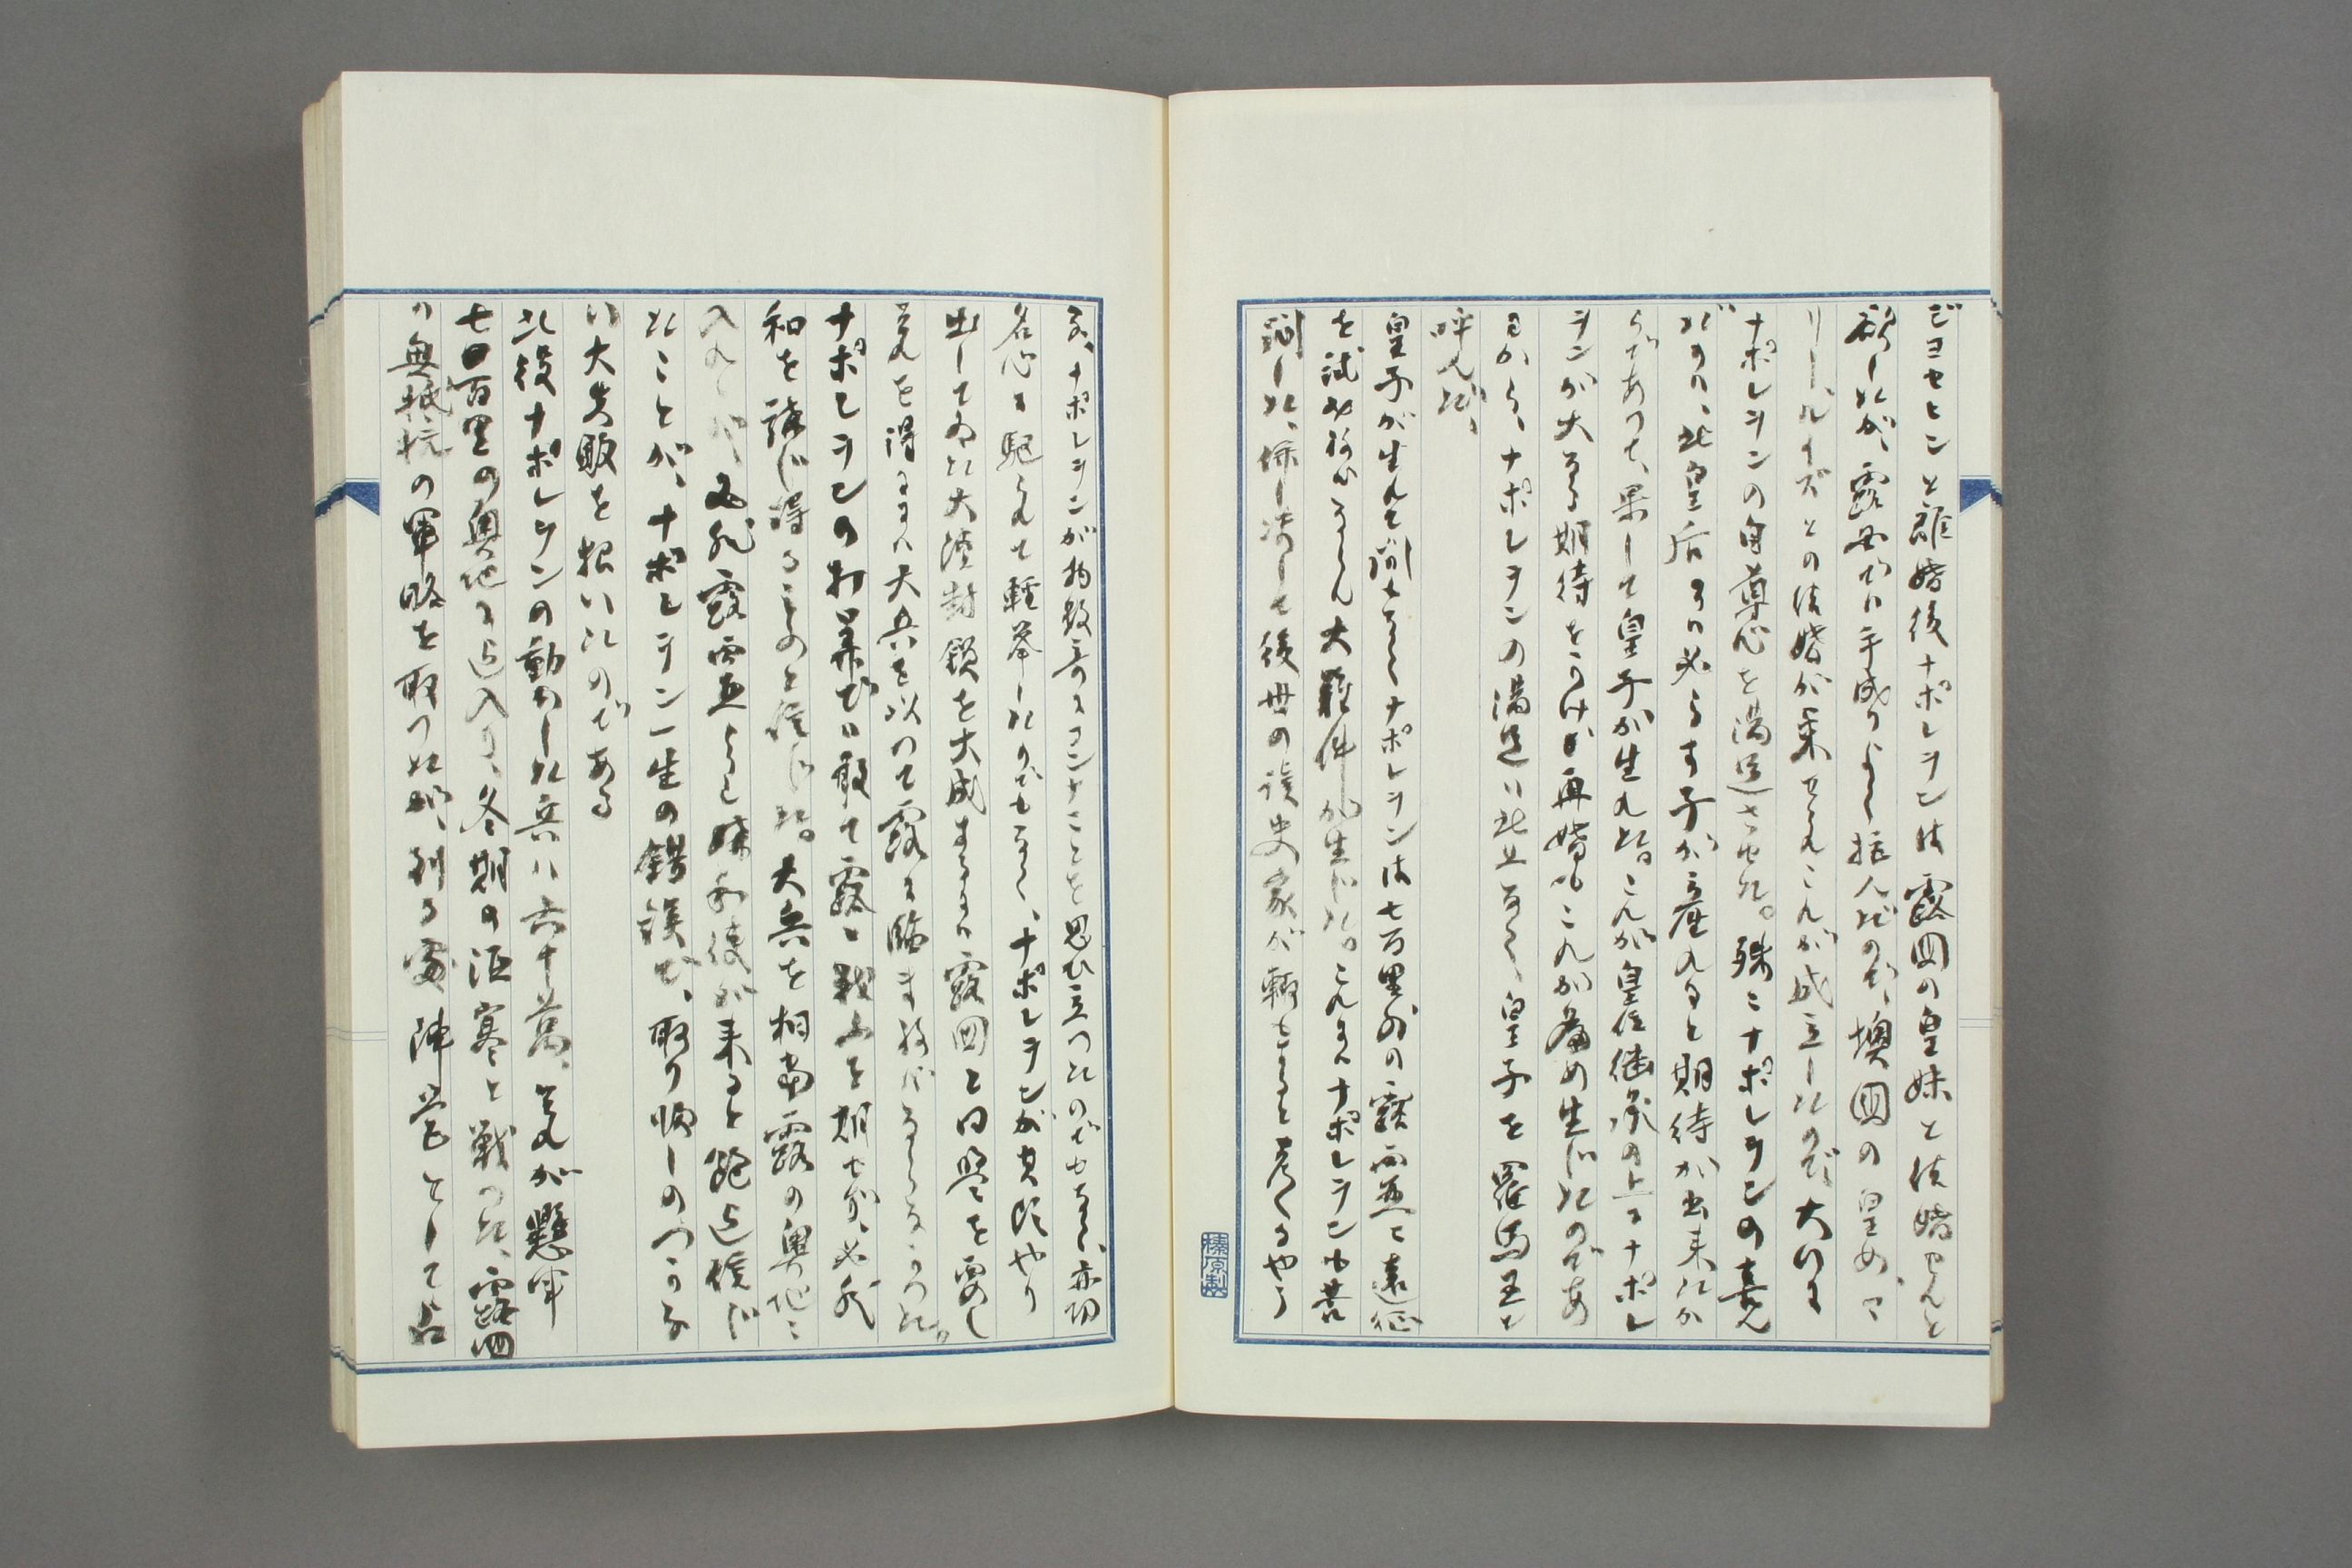 ジヨセヒンと離婚後ナポレヲンは露国の皇妹と結婚せんと
欲したが、露西で手成り行く拒んだので、墺国の皇女、マ
リー、ルイズとの結婚が来せられこれが成立したので、大いに
ナポレヲンの自尊心を満足させた。殊にナポレヲンの喜ん
だのは、此皇后よりは必らず子が産れると期待が出来たか
らであつて、果して皇子が生れた。これが皇位継承の上にナポレ
ヲンが大なる期待をかけが再婚もこれが為め生じたのであ
るから、ナポレヲンの満足は此上なく、皇子を羅馬王と
呼んだ、
皇子が生れて間もなくナポレヲンは七百里外の露西亜に遠征
を試みねばならん大難件が生じた。これにはナポレヲンも苦
悶した、併し決して後世の歴史家が
、ナポレヲンが物数奇にコンナことを思ひ立つたのでもなく、亦功
名心に駆られて軽挙したのでもなく、ナポレヲンが其頃やり
出してゐた大陸封鎖を大成するには露国と同盟を要し
是れを得るには大兵を以つて露に臨まねばならなかつた。
ナポレヲンの打算では敢て露と戦ふを期せず、必然
和を講じ得るものと信じた。大兵を相当露の奥地に
入れゝば、必然露西亜から媾和使が来ると飽迄信じ
たことが、ナポレヲン一生の錯誤で、取り返しのつかな
い大失敗を招いたのである
此役ナポレヲンの動かした兵は六十萬、是れが懸軍
七百里の奥地に迄入り、冬期の沍寒と戦つた、露国
の無抵抗の軍略を取つたが、到る処陣営として
榛原製